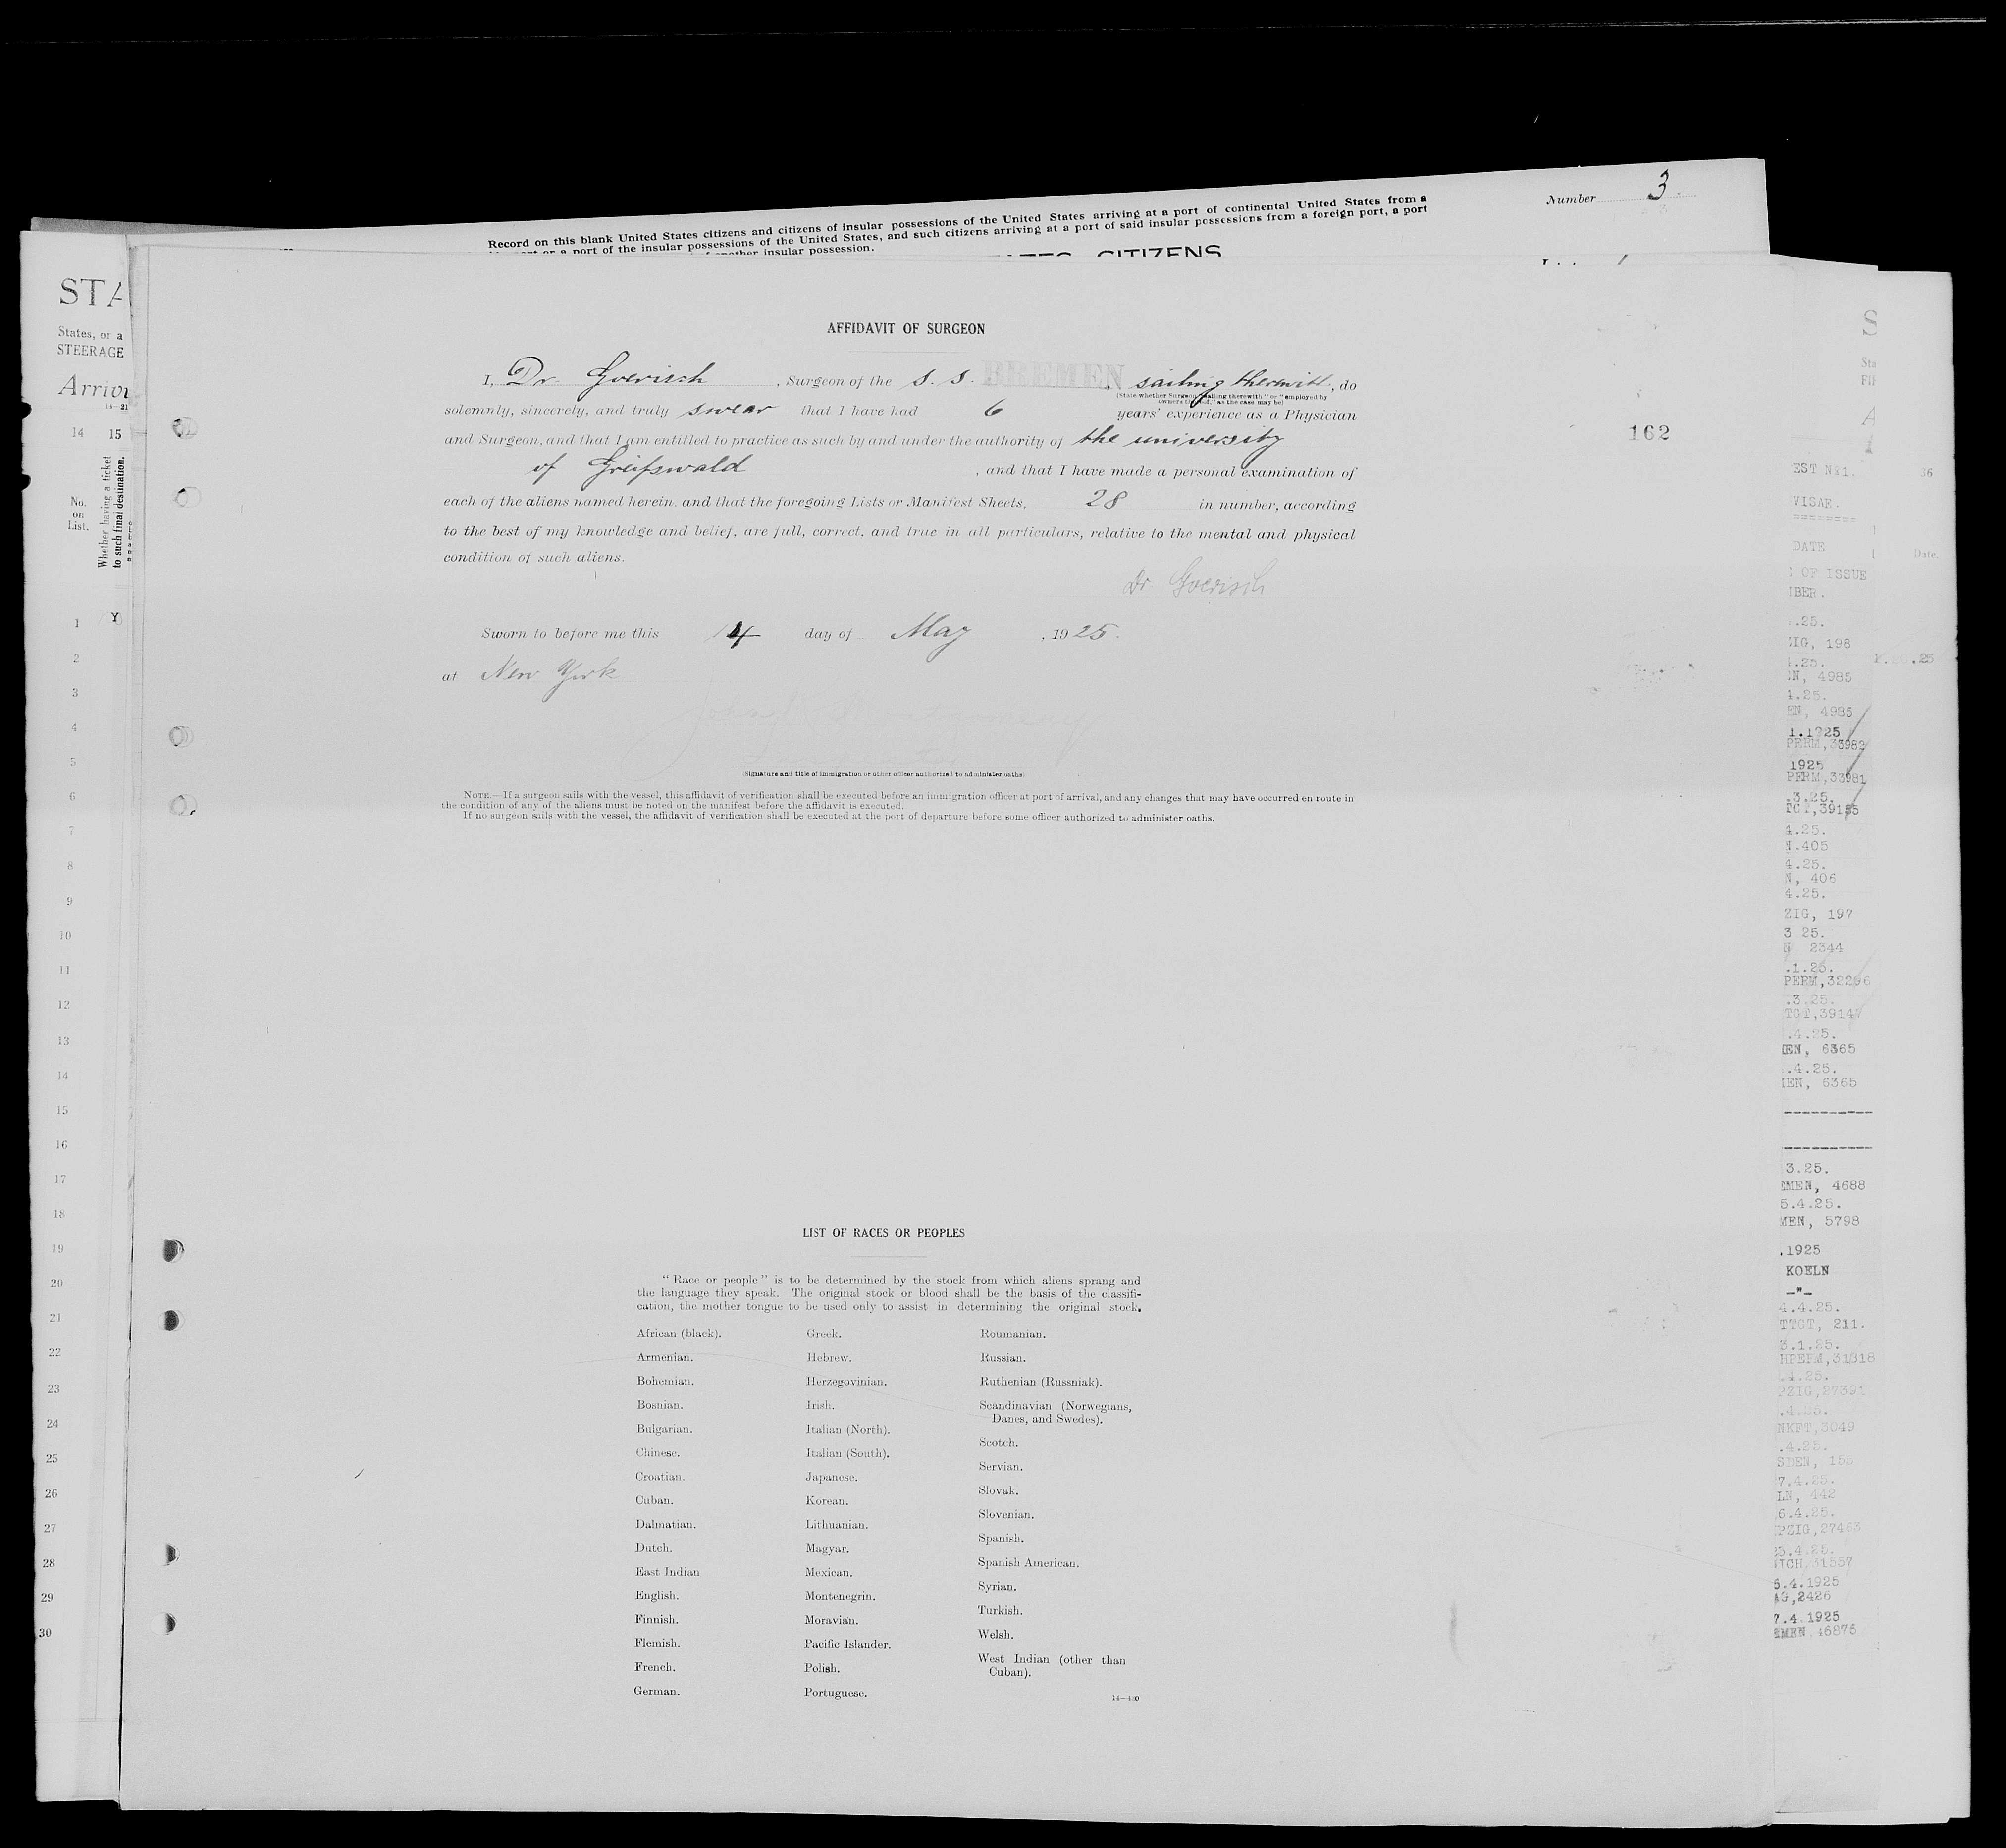 Number 3
Record on this blank United States citizens and citizens of insular possessions of the United States arriving at a port of continental United States from a
or a port of the insular possessions of the United States, and such citizens arriving at a port of said insular possessions from a foreign port, a port
another insular possession.
CITIZENS
AFFIDAVIT OF SURGEON
I, Dr. Goerisch, Surgeon of the S. S. BREMEN, sailing therewith, do
(State whether Surgeon "sailing therewith" or "employed by
owners thereof," as the case may be)
solemnly, sincerely, and truly swear that I have had 6 years' experience as a Physician
and Surgeon, and that I am entitled to practice as such by and under the authority of the university
of Greifswald, and that I have made a personal examination of
each of the aliens named herein, and that the foregoing Lists or Manifest Sheets, 28 in number, according
to the best of my knowledge and belief, are full, correct, and true in all particulars, relative to the mental and physical
condition of such aliens.
Dr Goerisch
Sworn to before me this 14 day of May, 1925.
at New York
(Signature and title of immigration or other officer authorized to administer oaths)
NOTE.—If a surgeon sails with the vessel, this affidavit of verification shall be executed before an immigration officer at port of arrival, and any changes that may have occurred en route in
the condition of any of the aliens must be noted on the manifest before the affidavit is executed.
If no surgeon sails with the vessel, the affidavit of verification shall be executed at the port of departure before some officer authorized to administer oaths.
162
LIST OF RACES OR PEOPLES
"Race or people" is to be determined by the stock from which aliens sprang and
the language they speak. The original stock or blood shall be the basis of the classifi-
cation, the mother tongue to be used only to assist in determining the original stock.
African (black).
Armenian.
Bohemian.
Bosnian.
Bulgarian.
Chinese.
Croatian.
Cuban.
Dalmatian.
Dutch.
East Indian
English.
Finnish.
Flemish.
French.
German.
Greek.
Hebrew.
Herzegovinian.
Irish.
Italian (North).
Italian (South).
Japanese.
Korean.
Lithuanian.
Magyar.
Mexican.
Montenegrin.
Moravian.
Pacific Islander.
Polish.
Portuguese.
Roumanian.
Russian.
Ruthenian (Russniak).
Scandinavian (Norwegians,
Danes, and Swedes).
Scotch.
Servian.
Slovak.
Slovenian.
Spanish.
Spanish American.
Syrian.
Turkish.
Welsh.
West Indian (other than
Cuban).
STA
States, or a
STEERAGE
14 15
No.
on
List.
Whether having a ticket
to such final destination.
1 Y
2
3
4
5
6
7
8
9
10
11
12
13
14
15
16
17
18
19
20
21
22
23
24
25
26
27
28
29
30
36
VISAE.
DATE Date.
OF ISSUE
.25.
ZIG, 198
.25.
N, 4985
4.25.
EN, 4985
1.1925
PERM,33982
1925
PERM,33981
.3.25.
4.25.
N.405
4.25.
N, 406
4.25.
ZIG, 197
3 25.
N 2344
.1.25.
PERM,32296
.3.25.
.4.25.
EN, 6365
.4.25.
MEN, 6365
3.25.
EMEN, 4688
5.4.25.
MEN, 5798
.1925
KOELN
-"-
4.4.25.
TTGT, 211.
3.1.25.
.4.25.
PZIG,27391
.4.25.
NKFT,3049
.4.25.
SDEN, 155
7.4.25.
LN, 442
6.4.25.
PZIG,27463
5.4.1925
AG,2426
7.4 1925
EMEN 46875